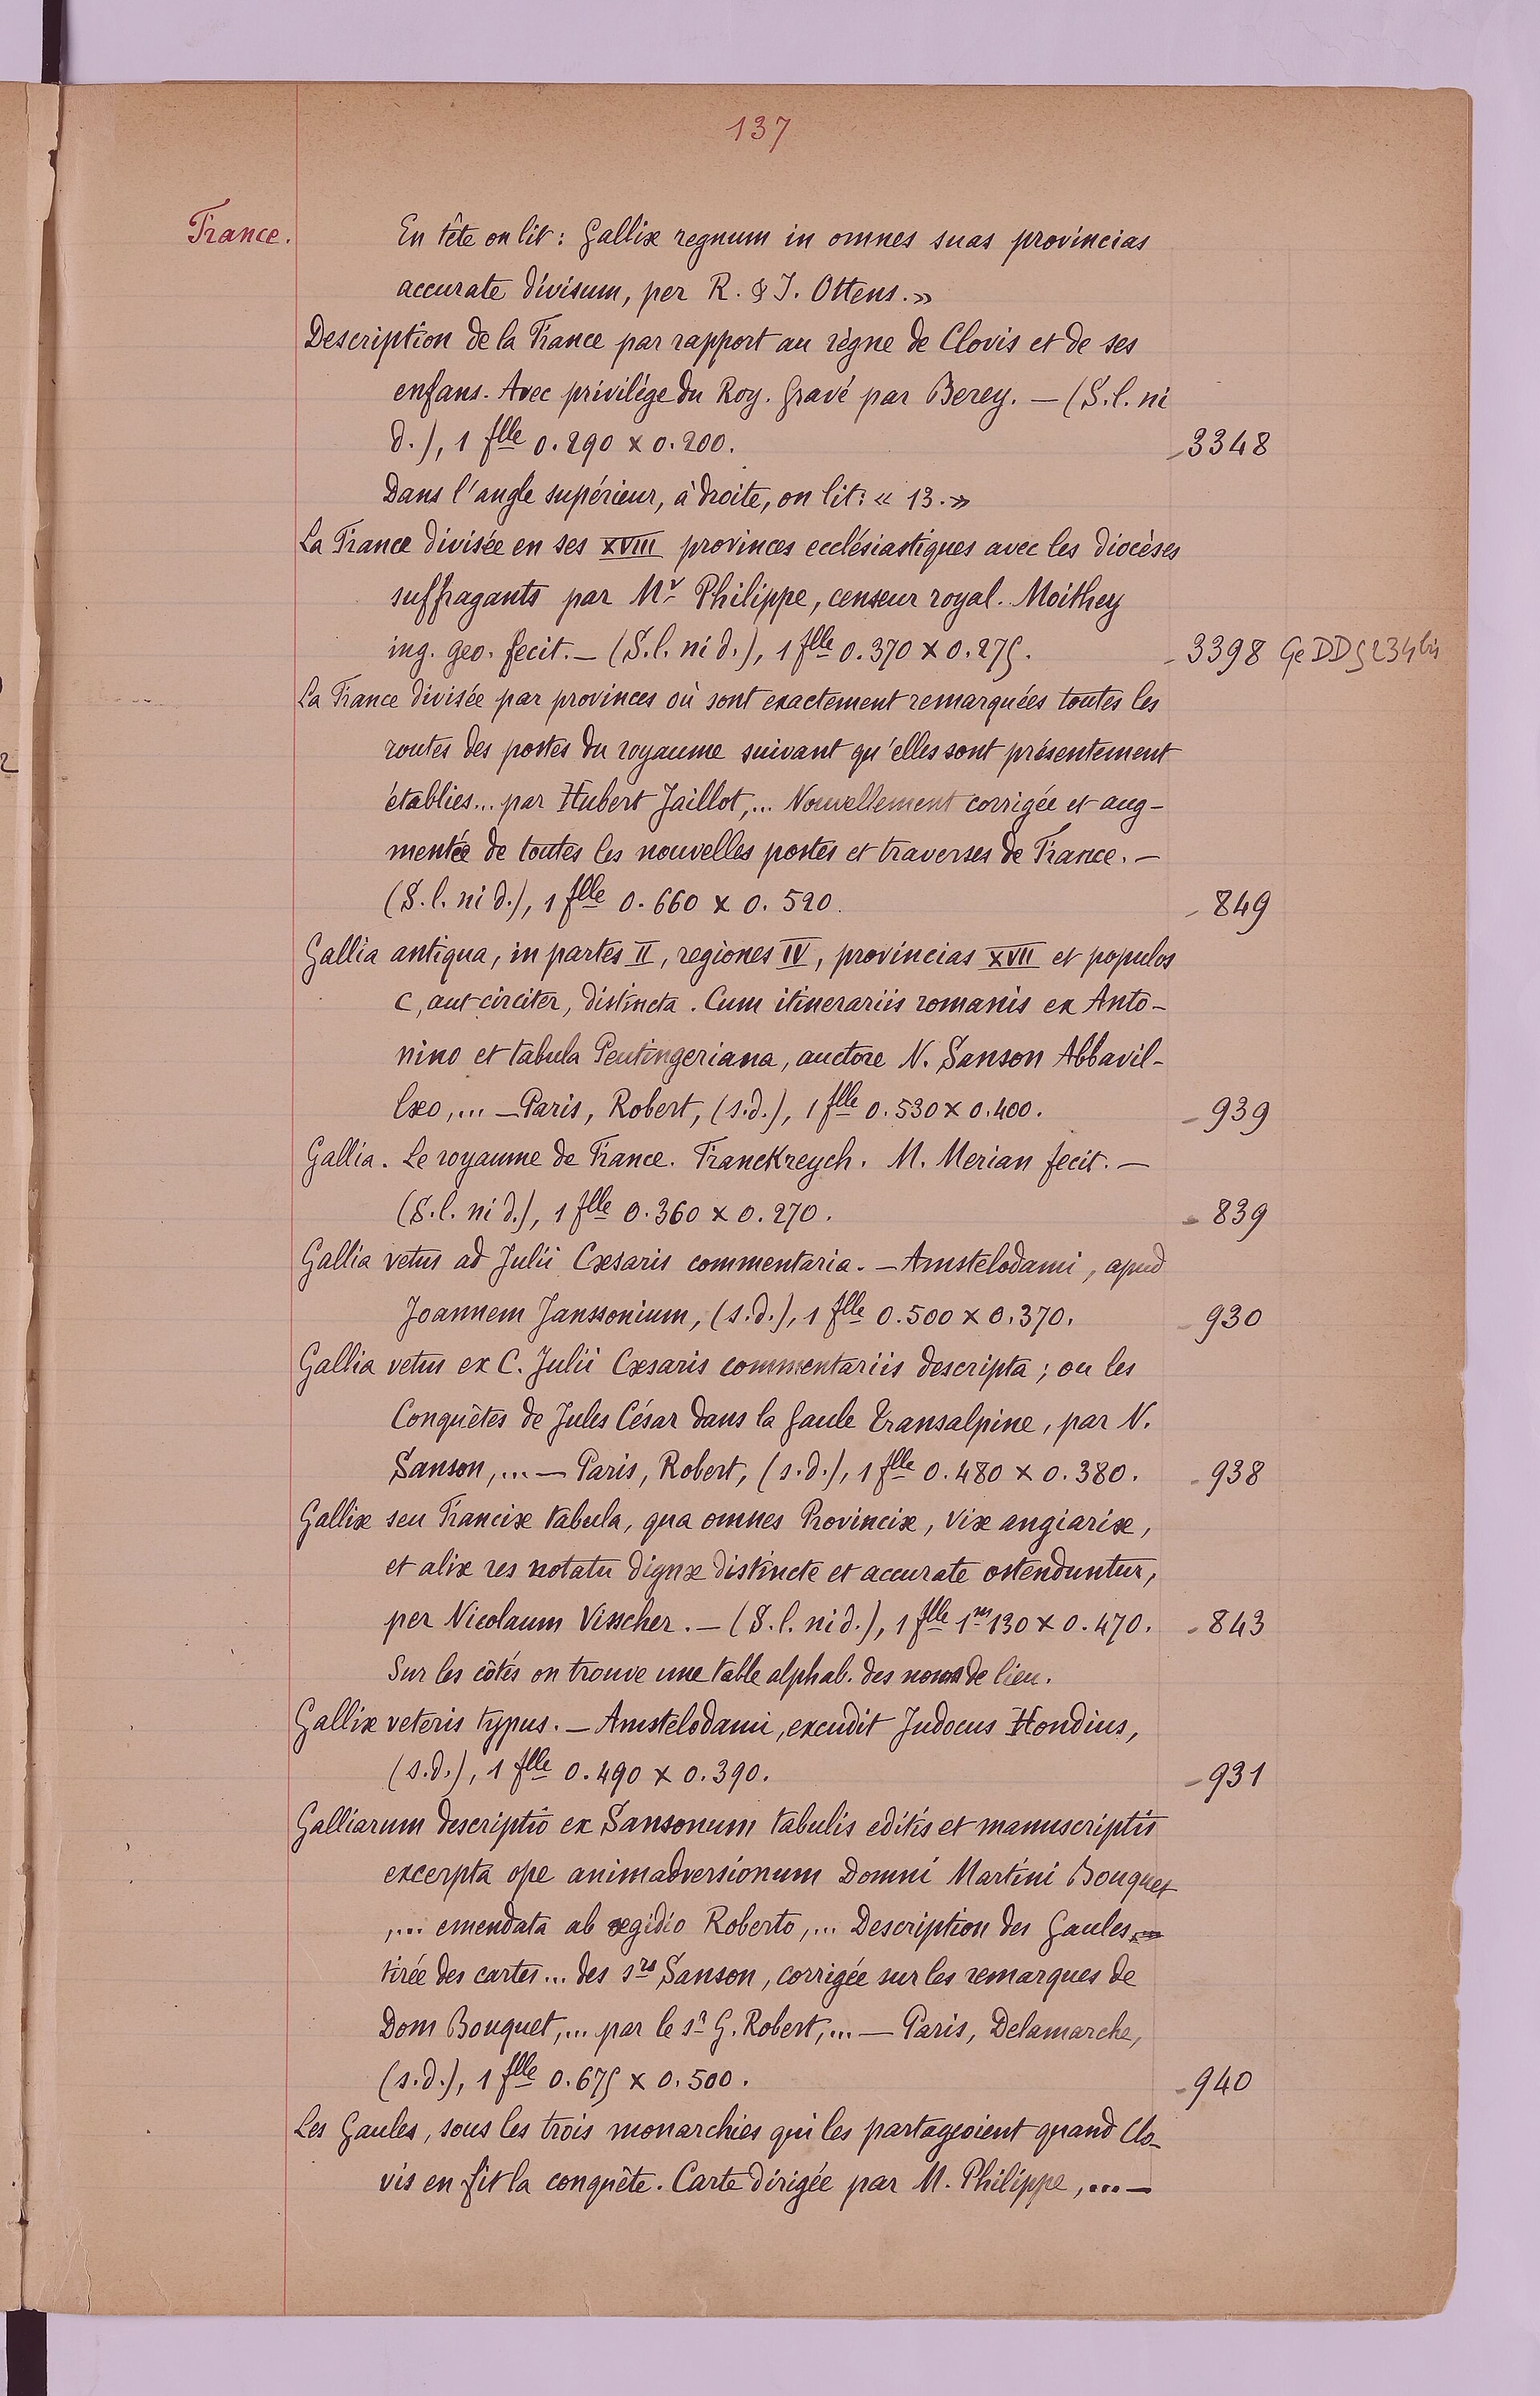 137
France.
En tête on lit : Galliæ regnum in omnes suas provincias
accurate divisum, per R. & J. Ottens.»
Description de la France par rapport au règne de Clovis et de ses
enfans. Avec privilége du Roy. Gravé par Berey. — (S. l. ni
d.), 1 flle 0.290 x 0.200. 3348
Dans l'angle supérieur, à droite, on lit : « 13.»
La France divisée en ses XVIII provinces ecclésiastiques avec les diocèses
suffragants par Mr Philippe, censeur royal. Moithey
ing. geo. fecit. — (S. l. ni d.), 1 flle 0.370 x 0.275. 3398 Ge DD 5234 bis
La France divisée par provinces où sont exactement remarquées toutes les
routes des postes du royaume suivant qu'elles sont présentement
établies... par Hubert Jaillot,... Nouvellement corrigée et aug-
mentée de toutes les nouvelles postes et traverses de France. —
(S. l. ni d.), 1 flle 0.660 x 0.520. 849
Gallia antiqua, in partes II, regiones IV, provincias XVII et populos
C, aut circiter, distincta. Cum itinerariis romanis ex Anto-
nino et tabula Peutingeriana, auctore N. Sanson Abbavil-
læo,... — Paris, Robert, (s.d.), 1 flle 0.530 x 0.400. 939
Gallia. Le royaume de France. Franckreych. M. Merian fecit. —
(S. l. ni d.), 1 flle 0.360 x 0.270. 839
Gallia vetus ad Julii Cæsaris commentaria. — Amstelodami, apud
Joannem Janssonium, (s.d.), 1 flle 0.500 x 0.370. 930
Gallia vetus ex C. Julii Cæsaris commentariis descripta ; ou les
Conquêtes de Jules César dans la Gaule Transalpine, par N.
Sanson,... — Paris, Robert, (s.d.), 1 flle 0.480 x 0.380. 938
Galliæ seu Franciæ tabula, qua omnes Provinciæ, Viæ angiariæ,
et aliæ res notatu dignæ distincte et accurate ostenduntur,
per Nicolaum Visscher. — (S. l. ni d.), 1 flle 1m130 x 0.470. 843
Sur les côtés on trouve une table alphab. des noms de lieu.
Galliæ veteris typus. — Amstelodami, excudit Judocus Hondius,
(s.d.), 1 flle 0.490 x 0.390. 931
Galliarum descriptio ex Sansonum tabulis editis et manuscriptis
excerpta ope animadversionum Domni Martini Bouquet
,... emendata ab ægidio Roberto,... Description des Gaules,
tirée des cartes... des srs Sanson, corrigée sur les remarques de
Dom Bouquet,... par le sr G. Robert,... — Paris, Delamarche,
(s.d.), 1 flle 0.675 x 0.500. 940
Les Gaules, sous les trois monarchies qui les partageoient quand Clo-
vis en fit la conquête. Carte dirigée par M. Philippe,... —